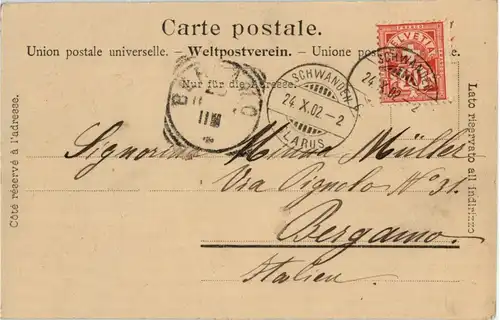 Carte postale.
Union postale universelle. — Weltpostverein. — Unione postale
Nur für die Adresse.
HELVETIA
SCHWANDEN
24. X. 02
SCHWANDEN
24. X. 02 – 2
GLARUS
BERGAMO
Signorina Minna Müller
Via Pignolo No 31.
Bergamo.
Italien.
Côté réservé à l'adresse.
Lato riservato all indirizzo